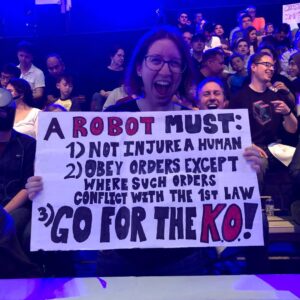 A ROBOT MUST:
1) NOT INJURE A HUMAN
2) OBEY ORDERS EXCEPT
WHERE SUCH ORDERS
CONFLICT WITH THE 1ST LAW
3) GO FOR THE K.O.!